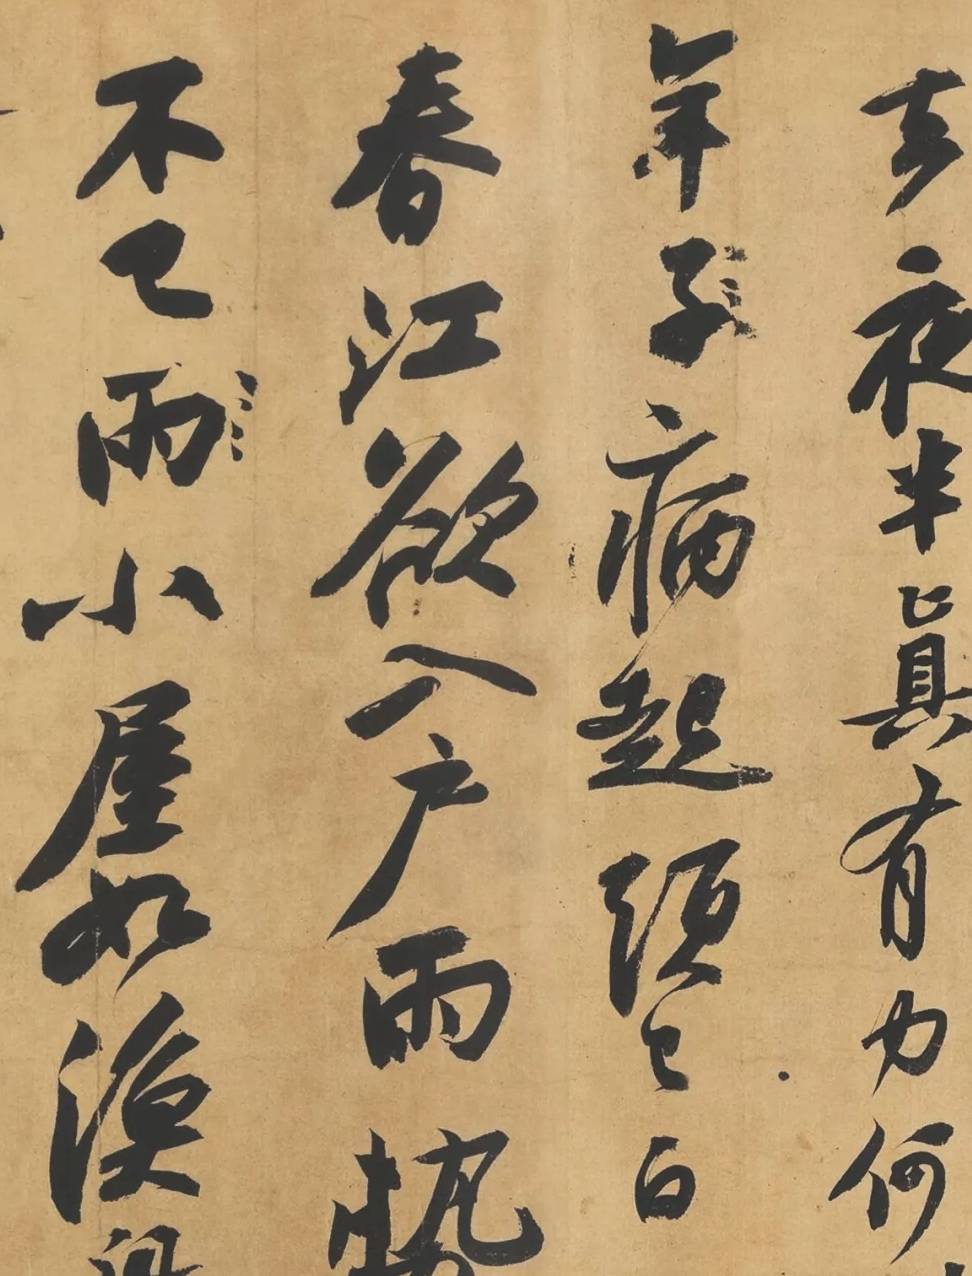 去夜半真有力何
年子病起須已白
春江欲入户雨勢
不已雨小屋如漁